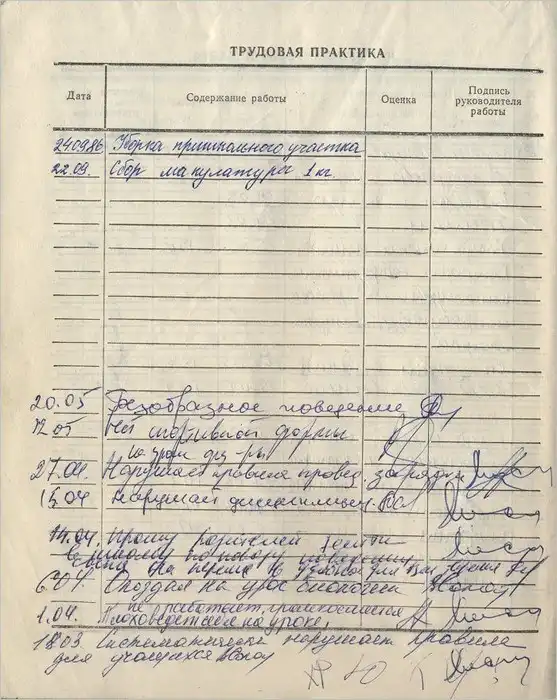 ТРУДОВАЯ ПРАКТИКА
Дата
Содержание работы
Оценка
Подпись
руководителя
работы
24.09.86 Уборка пришкольного участка
22.09. Сбор макулатуры 1 кг
20.05 Безобразное поведение
12 05 Нет спортивной формы
на урок физ-ры
27.04. Нарушает правила провед. зарядки
15 04 Нарушает дисциплину.
14.04. Прошу родителей зайти
в школу по поводу поведения
6.04. Опоздал на урок биологии
не работает,
1.04. Плохо ведет себя на уроке,
18.03 Систематически нарушает правила
для учащихся